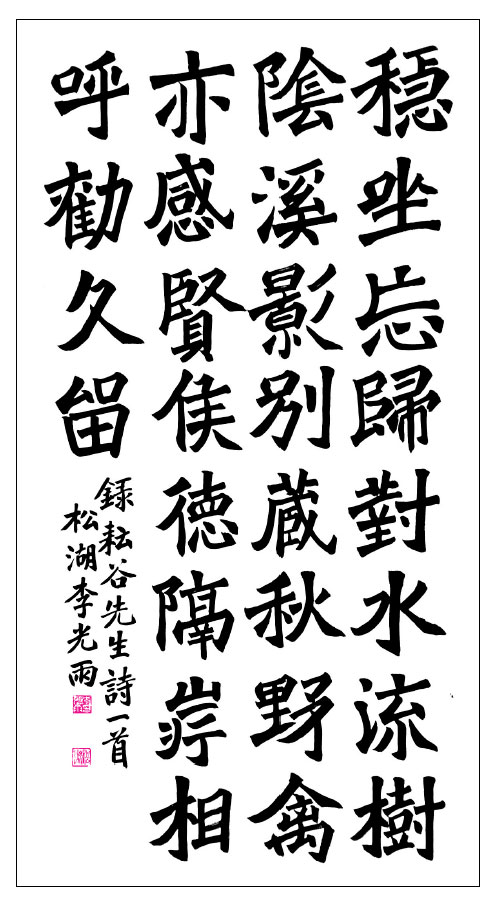 穏坐忘歸對水流樹
陰溪影別蔵秋野禽
亦感賢侯徳隔岸相
呼勸久留
錄耘谷先生詩一首
松湖李光雨